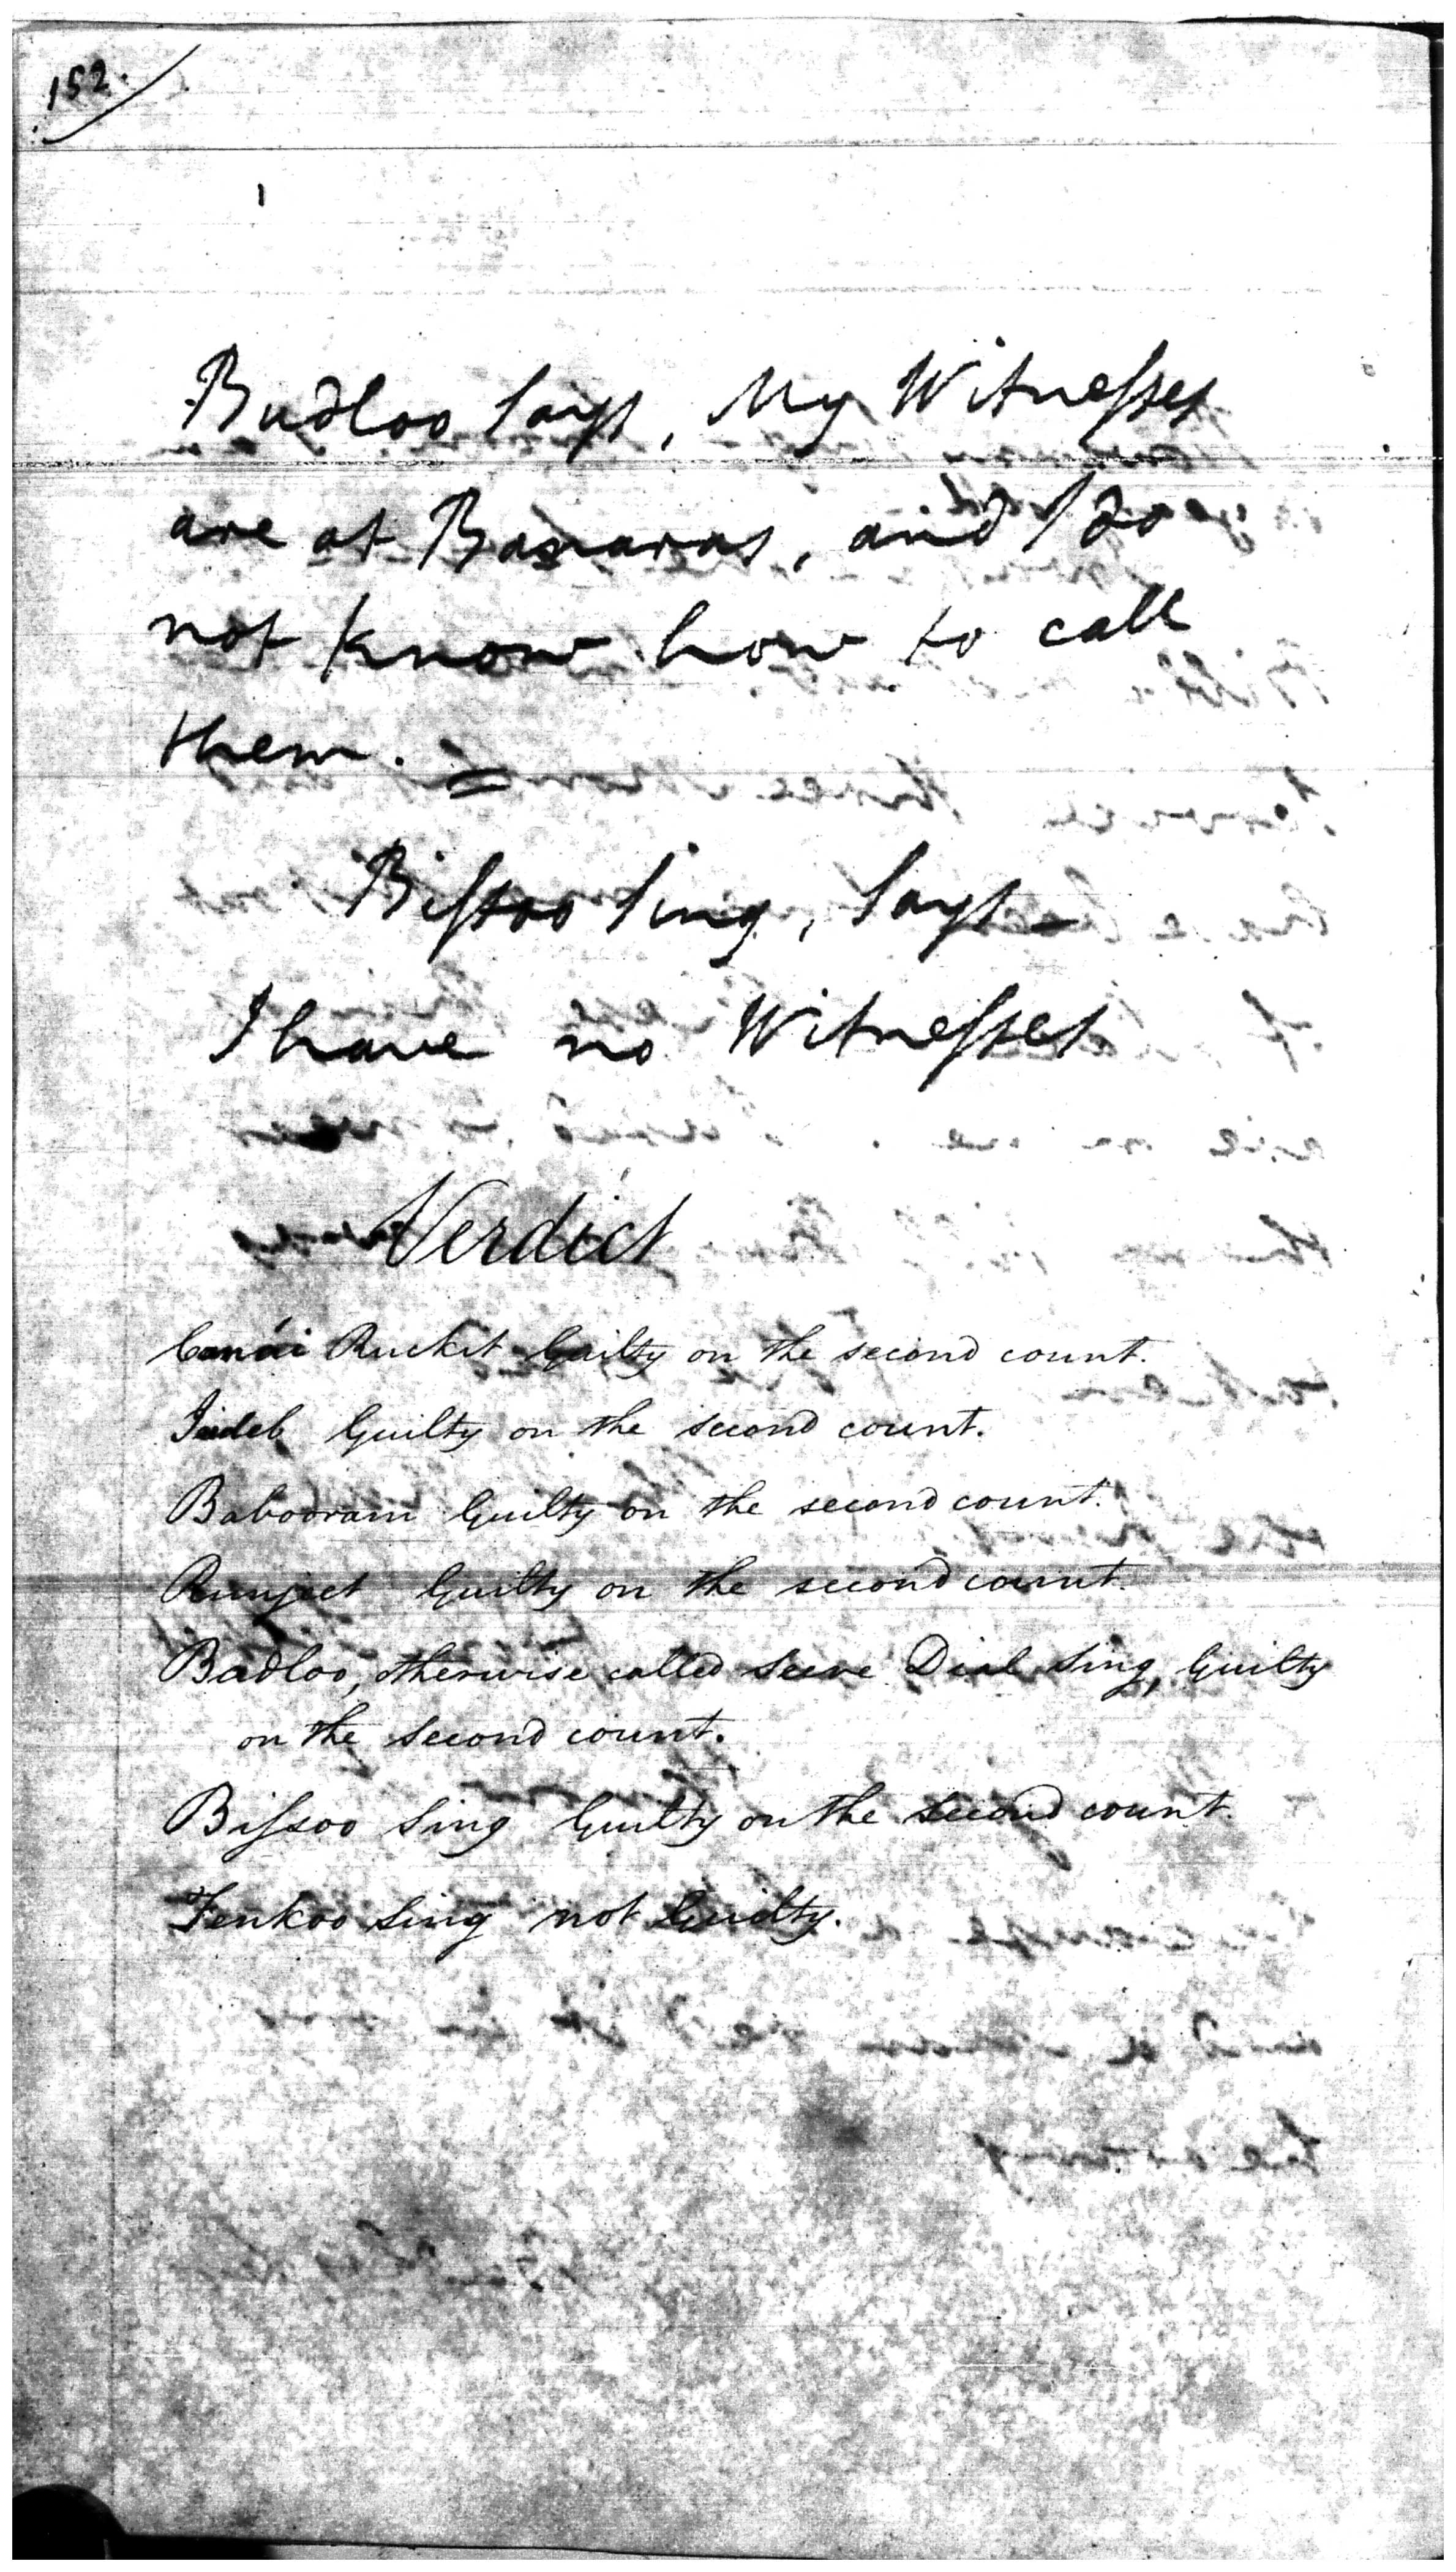 152.
Budloo says, My Witnesses
are at Banaras, and I do
not know how to call
them.
Bissoo Sing, Says
I have no Witnesses
Verdict
Canái Ruckit Guilty on the second count.
Jaideb Guilty on the second count.
Babooram Guilty on the second count.
Runjeet Guilty on the second count.
Badloo, otherwise called Seeve Dial Sing, Guilty
on the second count.
Bissoo Sing Guilty on the second count.
Tenkoo Sing not Guilty.